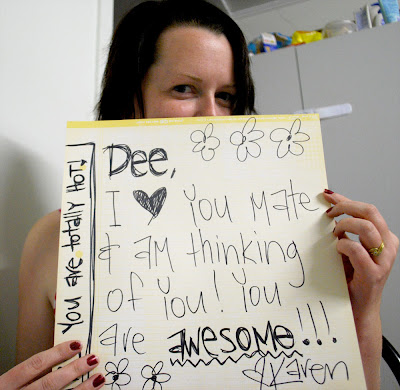 Dee,
I ♥ you mate
& am thinking
of you! You
are awesome!!!
Karen
You are totally HOT!